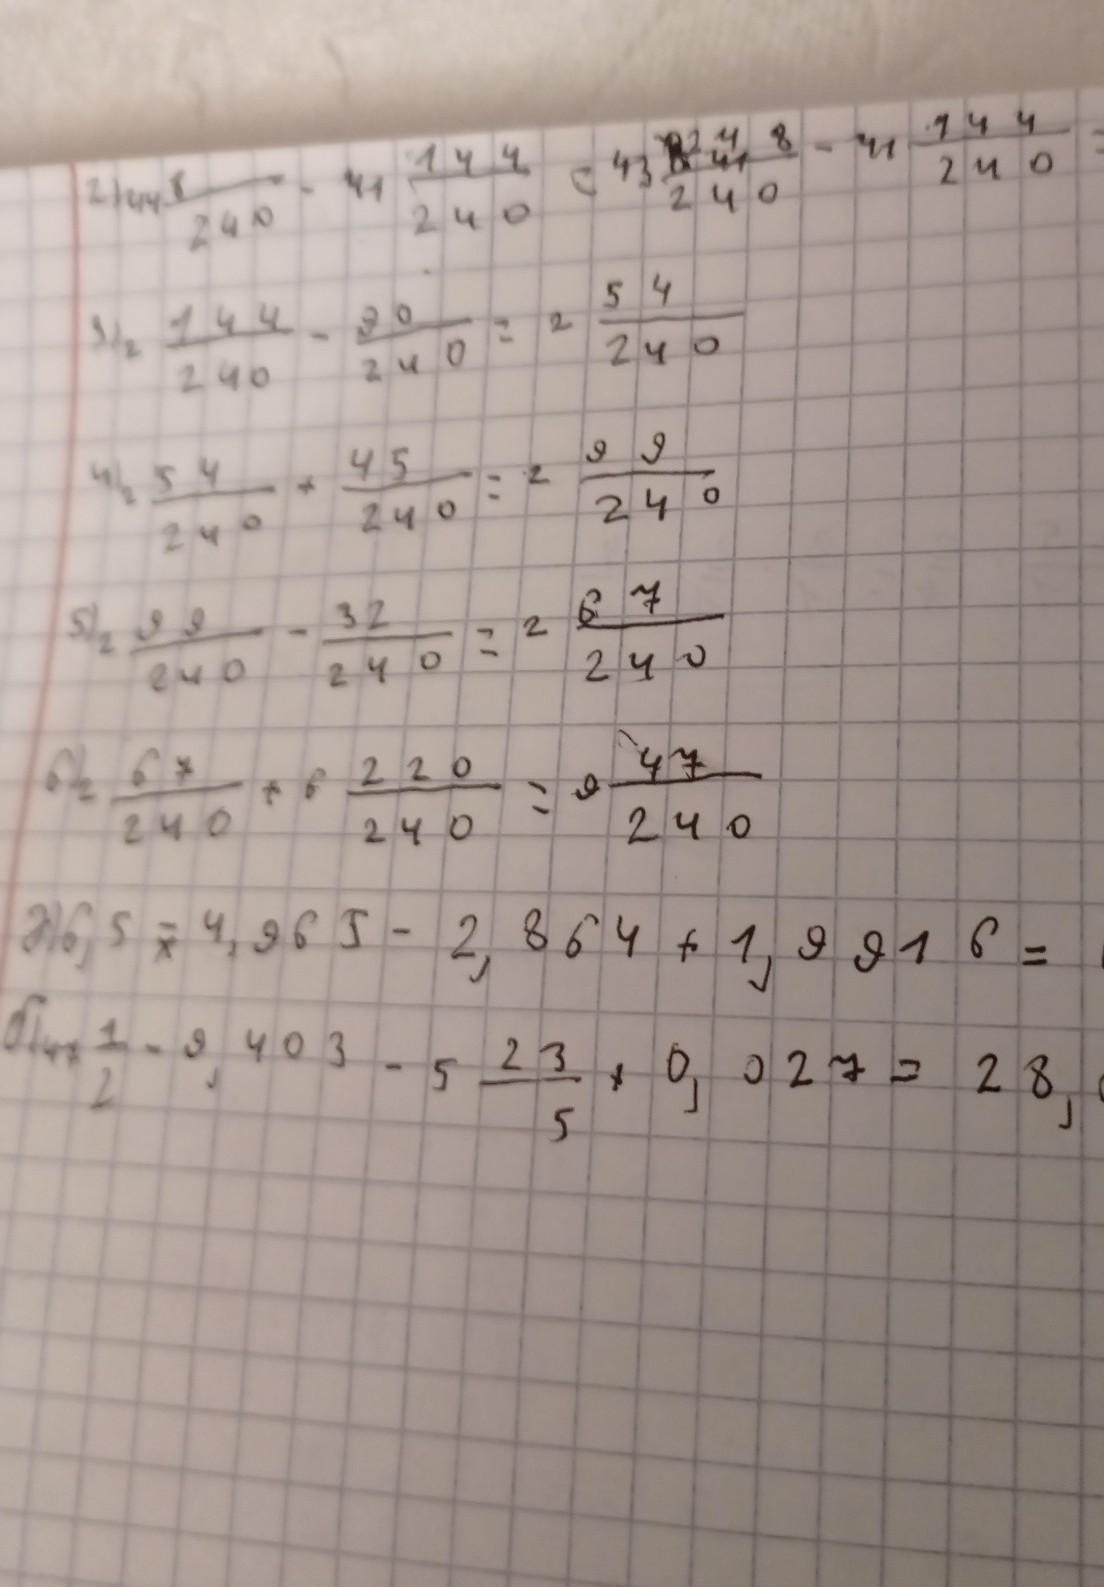 2) 44 8/240 - 41 144/240 = 43 248/240 - 41 144/240 =
3) 2 144/240 - 90/240 = 2 54/240
4) 2 54/240 + 45/240 = 2 99/240
5) 2 99/240 - 32/240 = 2 67/240
6) 2 67/240 + 6 220/240 = 9 47/240
6,5 + 4,965 - 2,864 + 1,9916 =
б) 47 1/2 - 9,403 - 5 23/5 + 0,027 = 28,